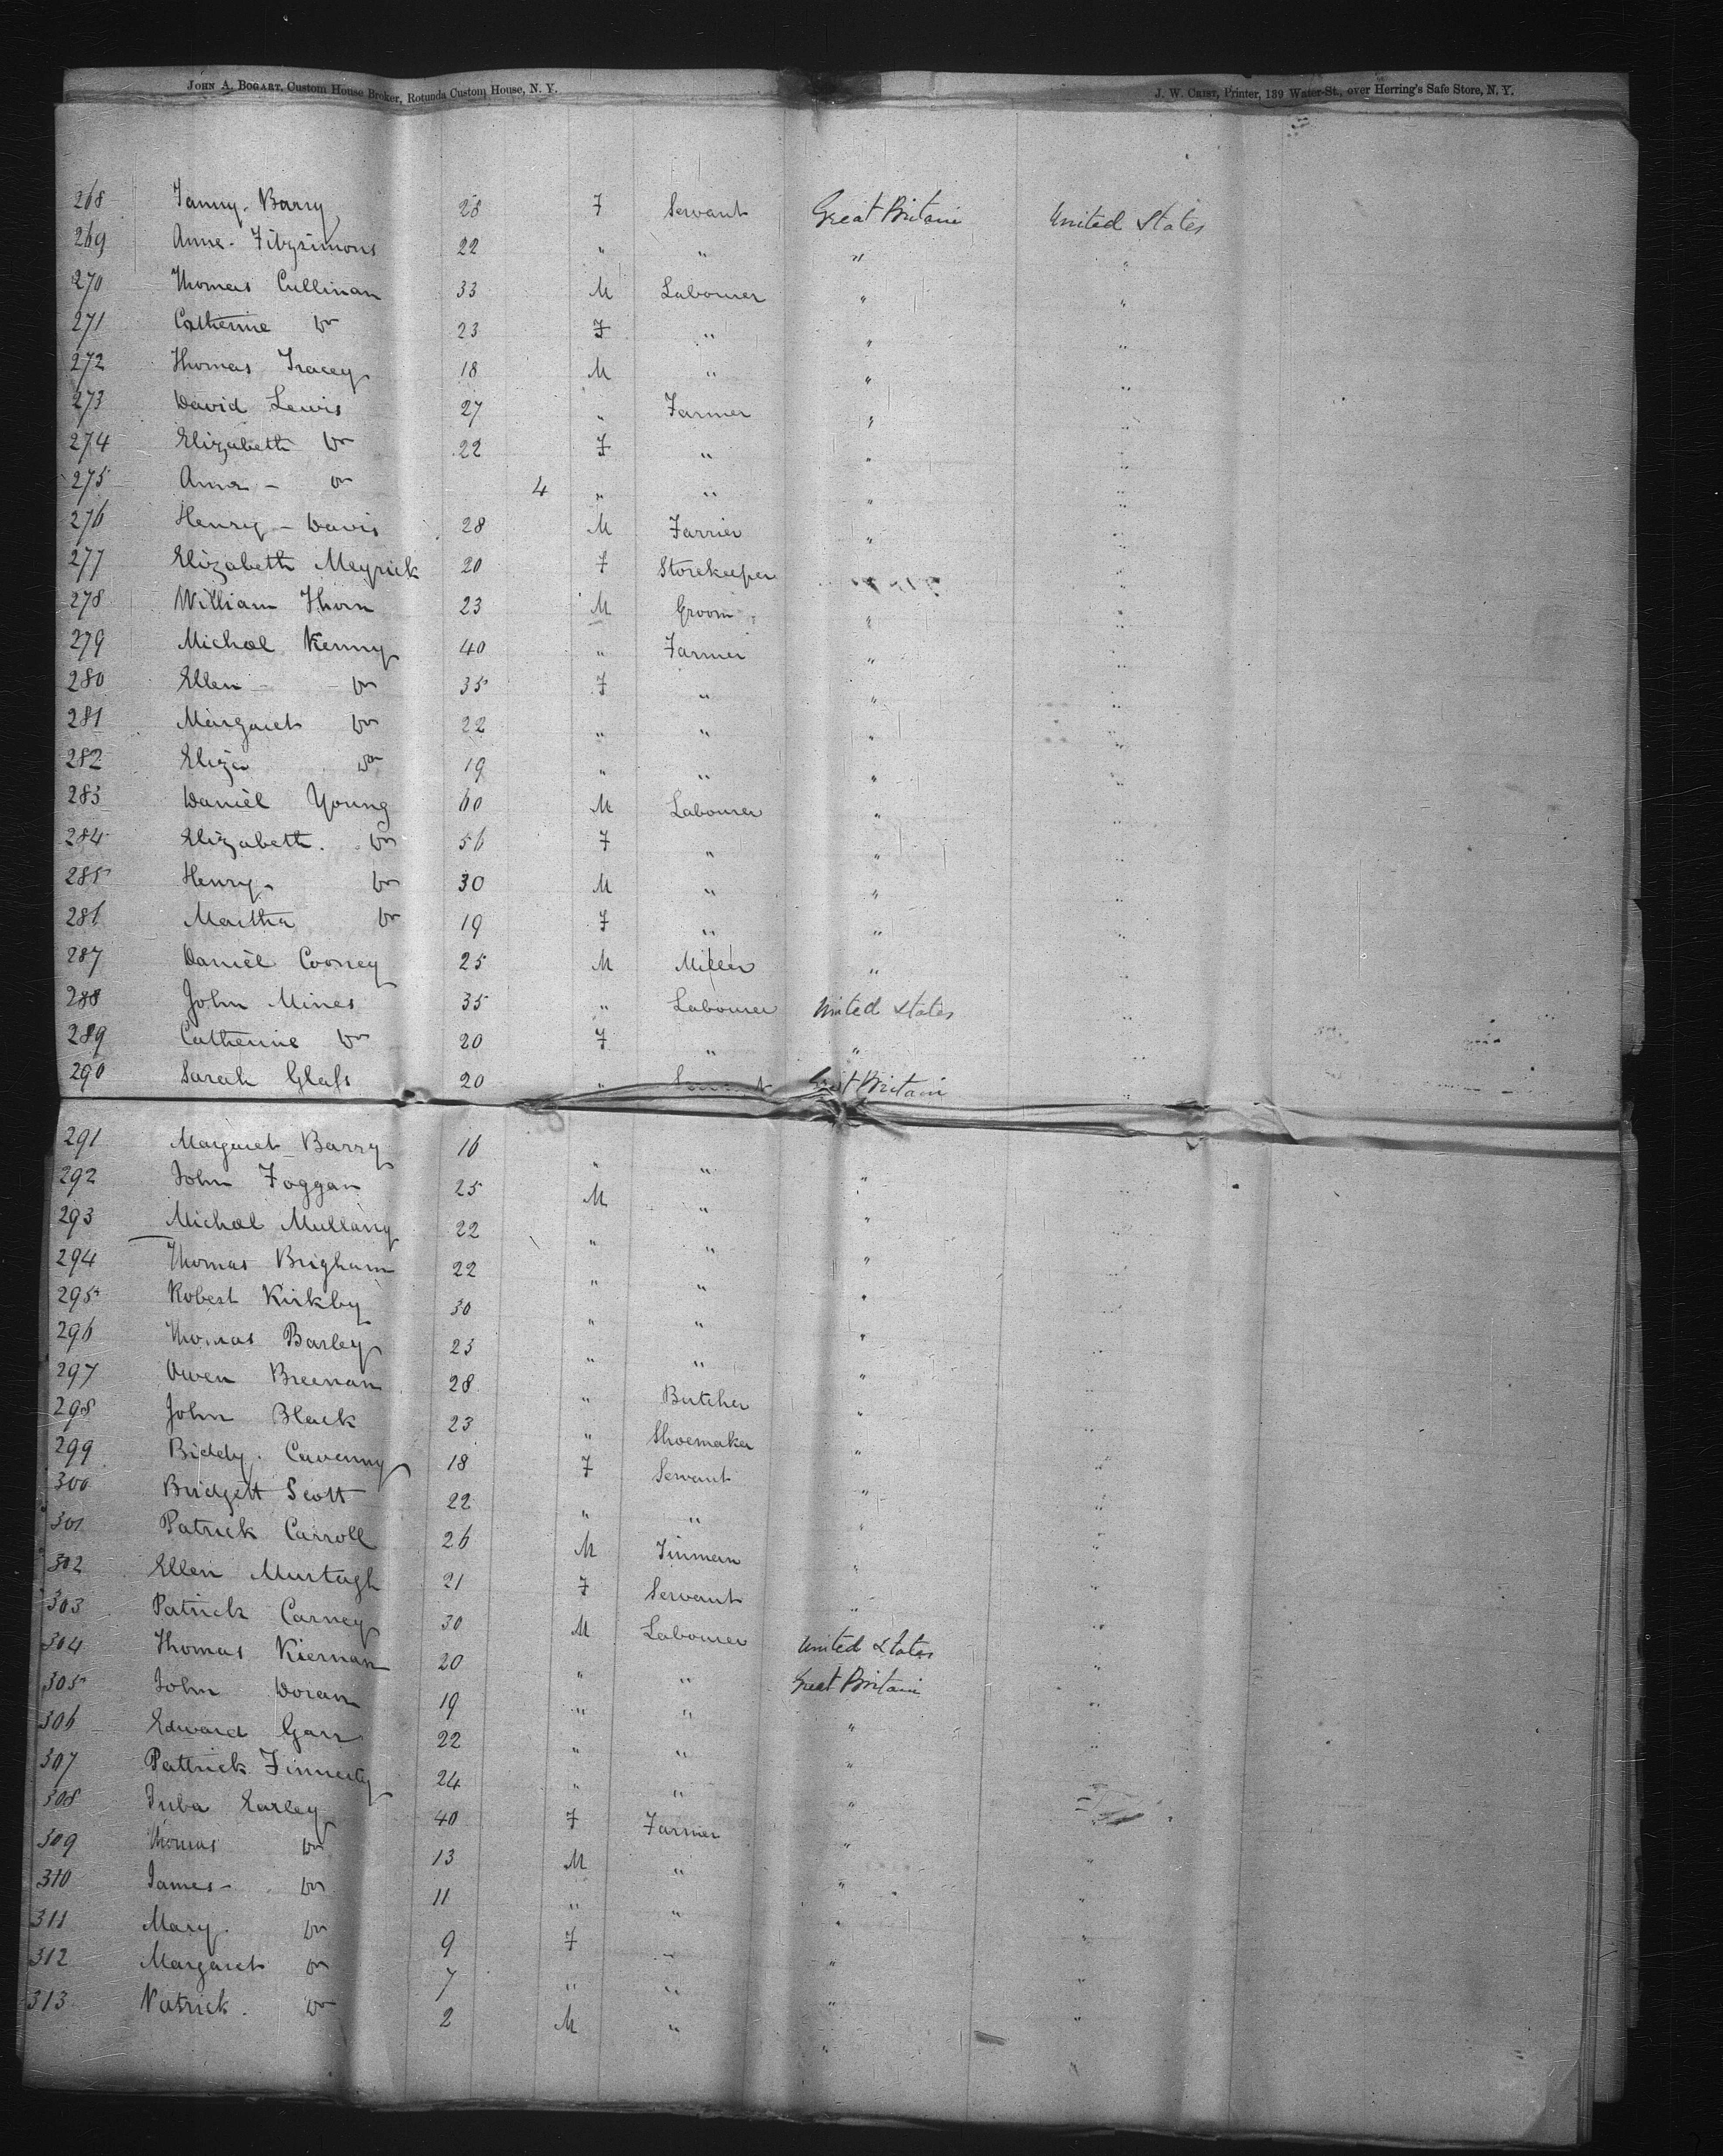 JOHN A. BOGART, Custom House Broker, Rotunda Custom House, N. Y. J. W. CRIST, Printer, 139 Water-St., over Herring's Safe Store, N. Y.
268 Fanny. Barry 28 F Servant Great Britain United States
269 Anne. Fitzsimons 22 " " " "
270 Thomas Cullinan 33 M Labourer " "
271 Catherine Do 23 F " " "
272 Thomas Tracey 18 M " " "
273 David Lewis 27 " Farmer " "
274 Elizabeth Do 22 F " " "
275 Anna - Do 4 " " " "
276 Henry - Davis 28 M Farrier " "
277 Elizabeth Meyrick 20 F Storekeeper "
278 William Thorn 23 M Groom " "
279 Michael Kenny 40 " Farmer " "
280 Ellen - Do 35 F " " "
281 Margaret Do 22 " " " "
282 Eliza Do 19 " " " "
283 Daniel Young 60 M Labourer " "
284 Elizabeth. Do 56 F " " "
285 Henry. Do 30 M " " "
286 Martha Do 19 F " " "
287 Daniel Cooney 25 M Miller " "
288 John Mines 35 " Labourer United States "
289 Catherine Do 20 F " " "
290 Sarah Glass 20 " Servant Great Britain "
291 Margaret Barry 16 " " "
292 John Foggan 25 M " "
293 Michael Mullany 22 " " " "
294 Thomas Brigham 22 " " " "
295 Robert Kirkby 30 " " " "
296 Thomas Barley 23 " " " "
297 Owen Breenan 28 " Butcher " "
298 John Black 23 " Shoemaker " "
299 Biddy. Cavenny 18 F Servant " "
300 Bridgett Scott 22 " " " "
301 Patrick Carroll 26 M Tinman " "
302 Ellen Murtagh 21 F Servant " "
303 Patrick Carney 30 M Labourer United States "
304 Thomas Kiernan 20 " " Great Britain "
305 John Doran 19 " " " "
306 Edward Garr 22 " " " "
307 Pattrick Finnerty 24 " " "
308 Juba Earley 40 F Farmer " "
309 Thomas Do 13 M " " "
310 James - Do 11 " " " "
311 Mary. Do 9 F " " "
312 Margaret Do 7 " " " "
313 Patrick. Do 2 M " " "